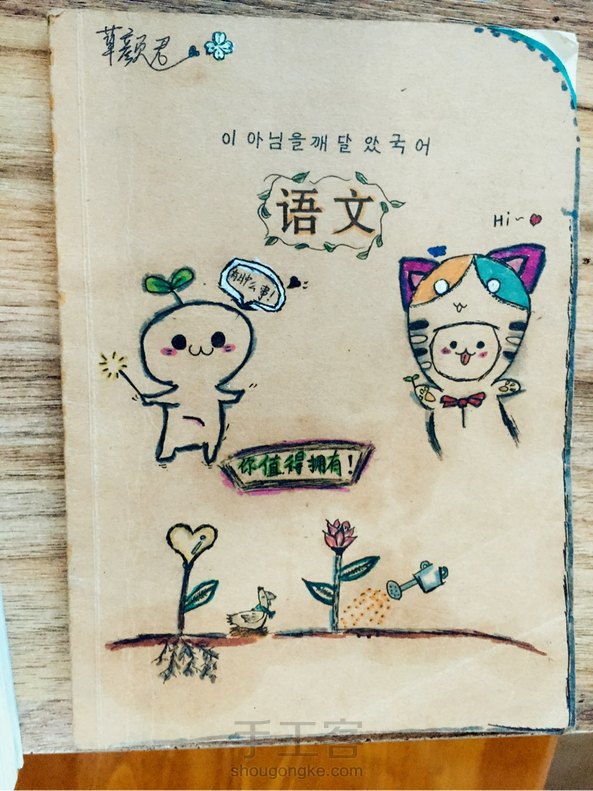 草颜君
이 아님을 깨 달 았 국 어
语文
Hi~
有什么事!
你值得拥有!
手工客
shougongke.com